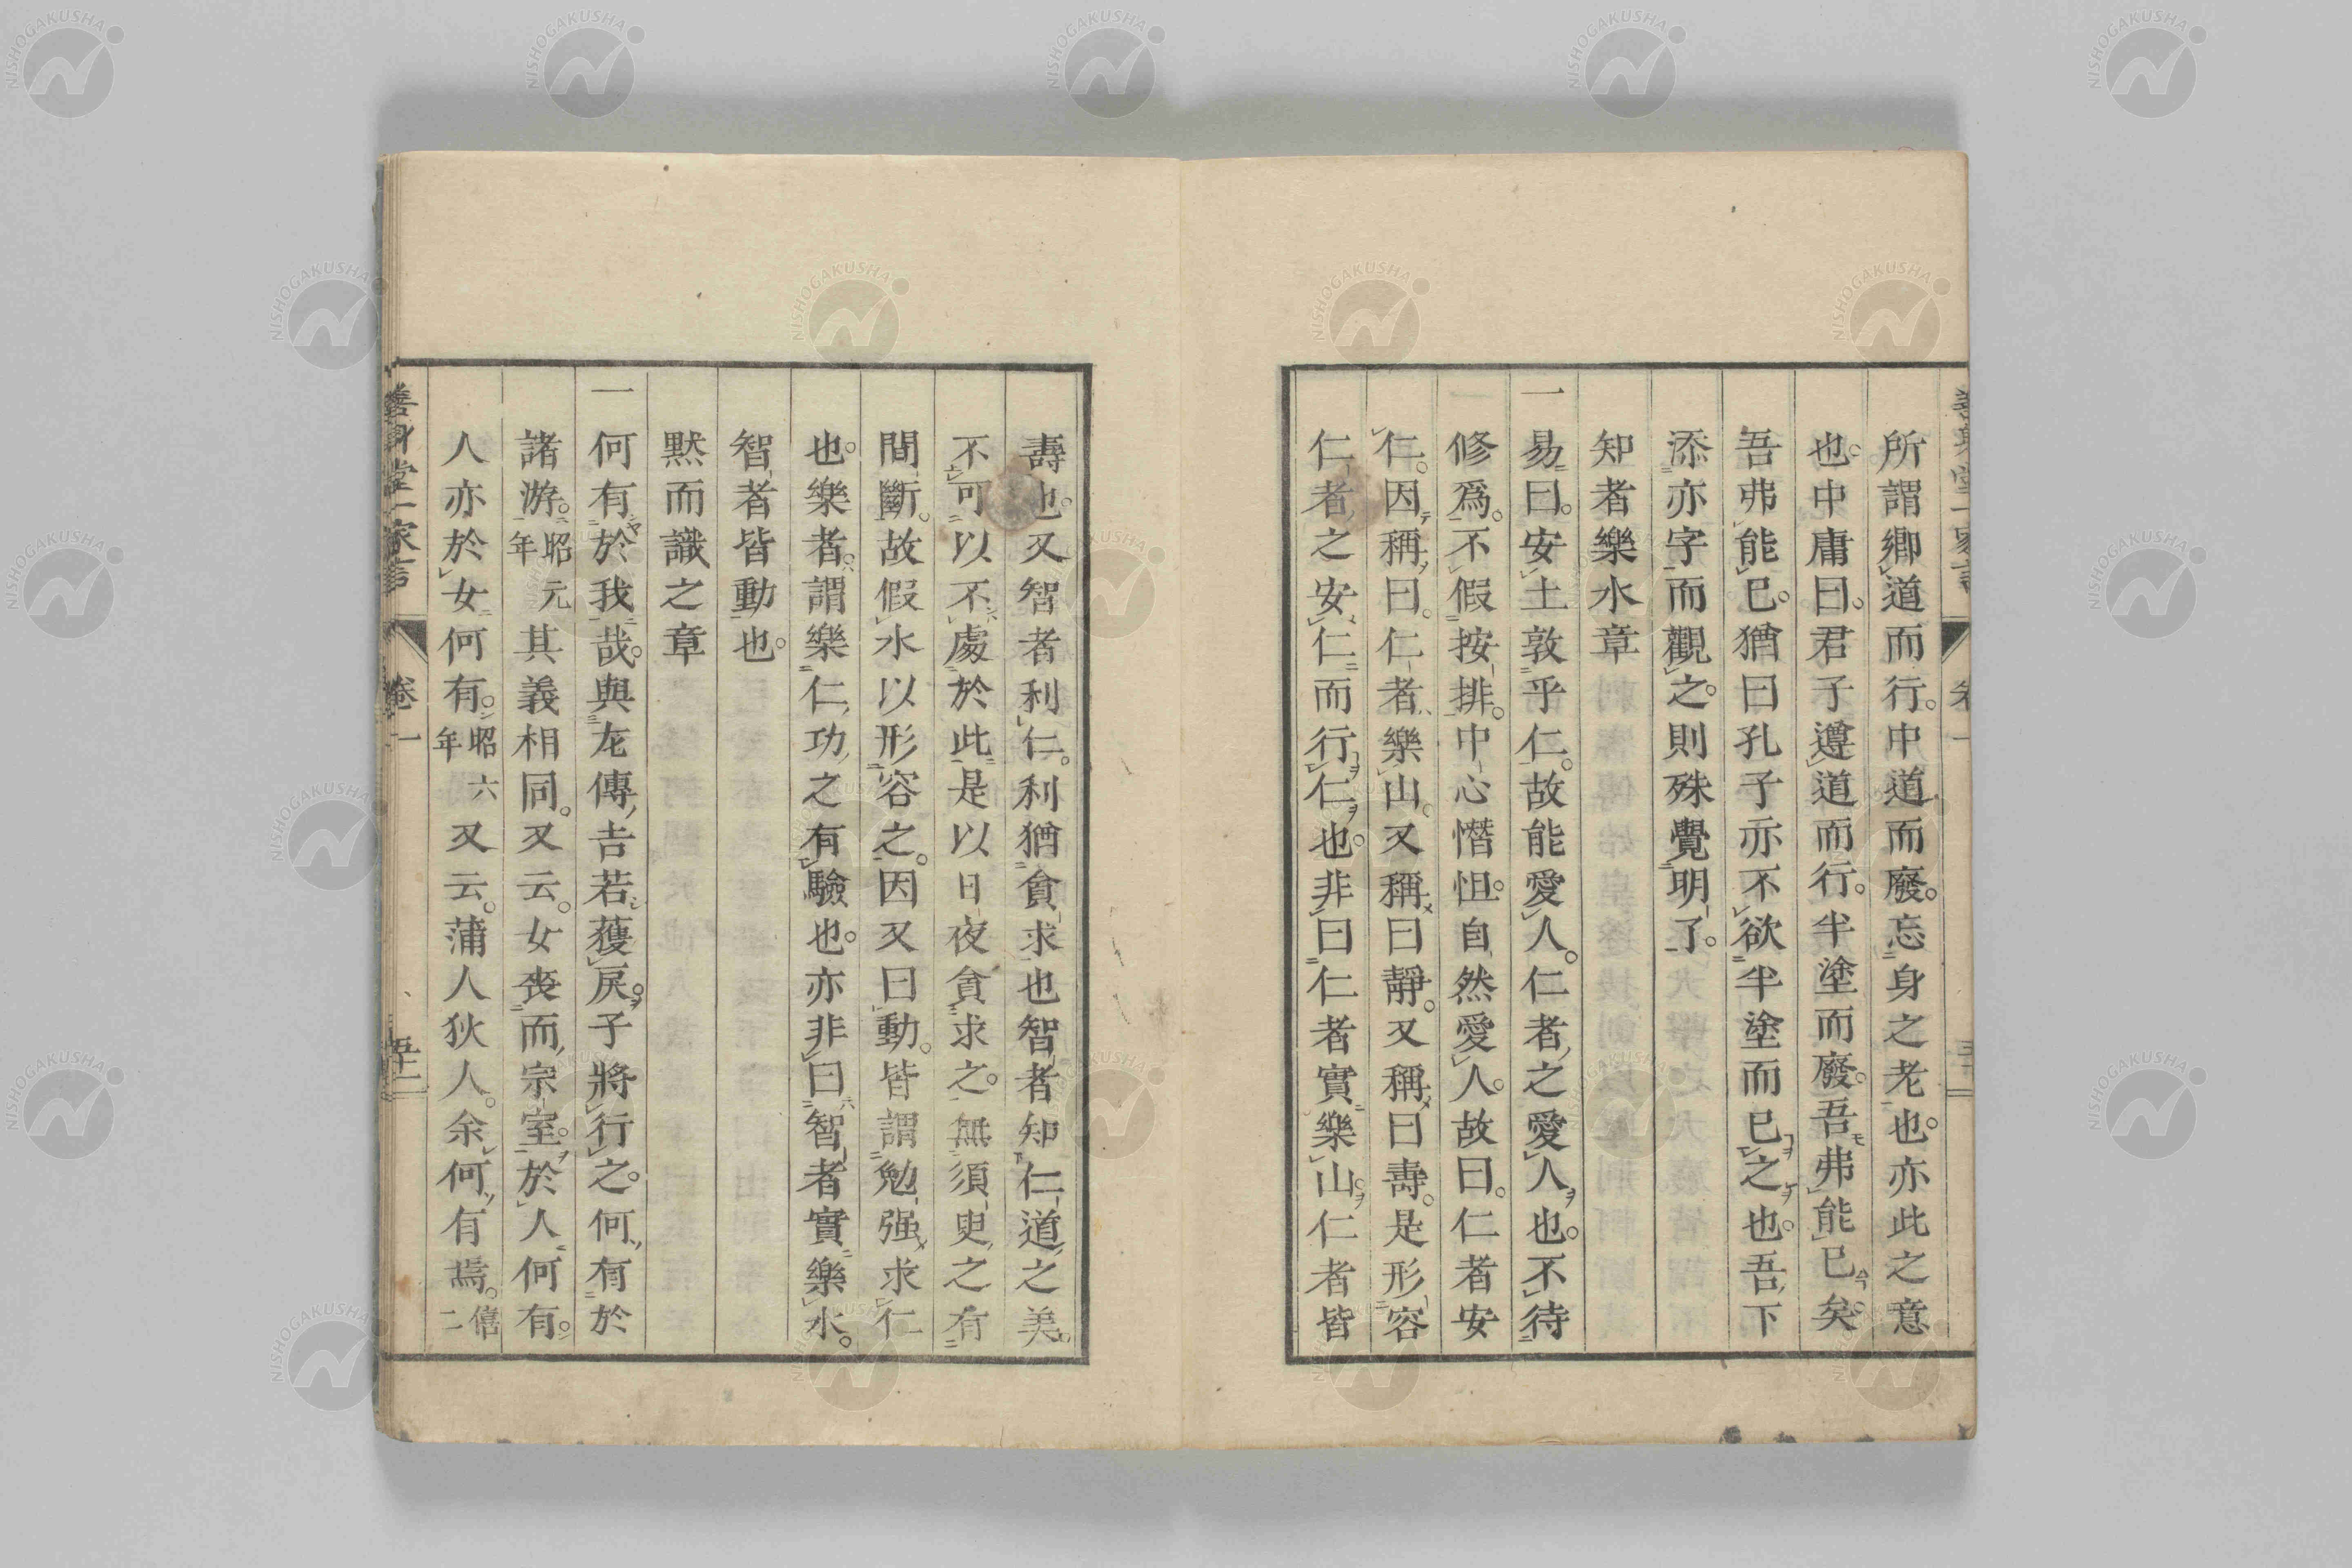 所謂鄉道而行。中道而廢。忘身之老也。亦此之意
也。中庸曰。君子遵道而行。半塗而廢。吾弗能已矣。
吾弗能已。猶曰孔子亦不欲半塗而已之也。吾下
添亦字而觀之。則殊覺明了。
知者樂水章
一易曰。安土敦乎仁。故能愛人。仁者之愛人也。不待
修爲。不假按排。中心憯怛。自然愛人。故曰。仁者安
仁。因稱曰。仁者樂山。又稱曰靜。又稱曰壽。是形容
仁者之安仁而行仁也。非曰仁者實樂山。仁者皆
壽也。又智者利仁。利猶貪求也智者知仁道之美。
不可以不處於此。是以日夜貪求之。無須臾之有
間斷。故假水以形容之。因又曰動。皆謂勉强求仁
也。樂者。謂樂仁功之有驗也。亦非曰智者實樂水。
智者皆動也。
默而識之章
一何有於我哉。與左傳吉若獲戾。子將行之。何有於
諸游。昭元年其義相同。又云。女喪而宗室。於人何有。
人亦於女何有。昭六年又云。蒲人狄人。余何有焉。僖二
善身堂一家言
卷一
五十二
NISHOGAKUSHA